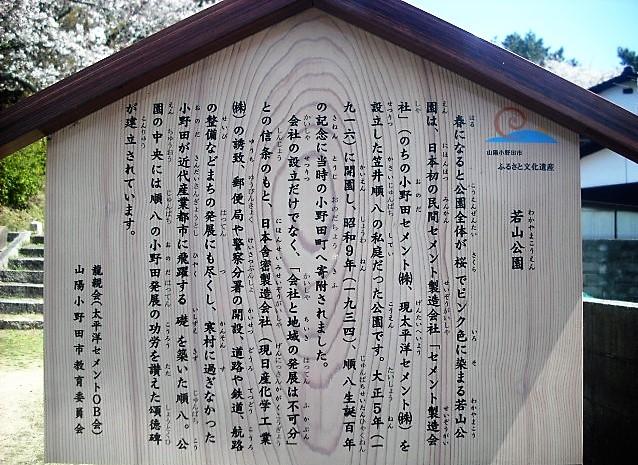 山陽小野田市
ふるさと文化遺産
若山公園
春になると公園全体が桜でピンク色に染まる若山公
園は、日本初の民間セメント製造会社「セメント製造会
社」(のちの小野田セメント㈱、現太平洋セメント㈱)を
設立した笠井順八の私庭だった公園です。大正5年(一
九一六)に開園し、昭和9年(一九三四)順八生誕百年
の記念に当時の小野田町へ寄附されました。
会社の設立だけでなく、「会社と地域の発展は不可分」
との信条のもと、日本舎密製造会社(現日産化学工業
㈱)の誘致、郵便局や警察分署の開設、道路や鉄道、航路
の整備などまちの発展にも尽くし、寒村に過ぎなかった
小野田が近代産業都市に飛躍する礎を築いた順八。公
園の中央には順八の小野田発展の功労を讃えた頌徳碑
が建立されています。
龍親会(太平洋セメントOB会)
山陽小野田市教育委員会